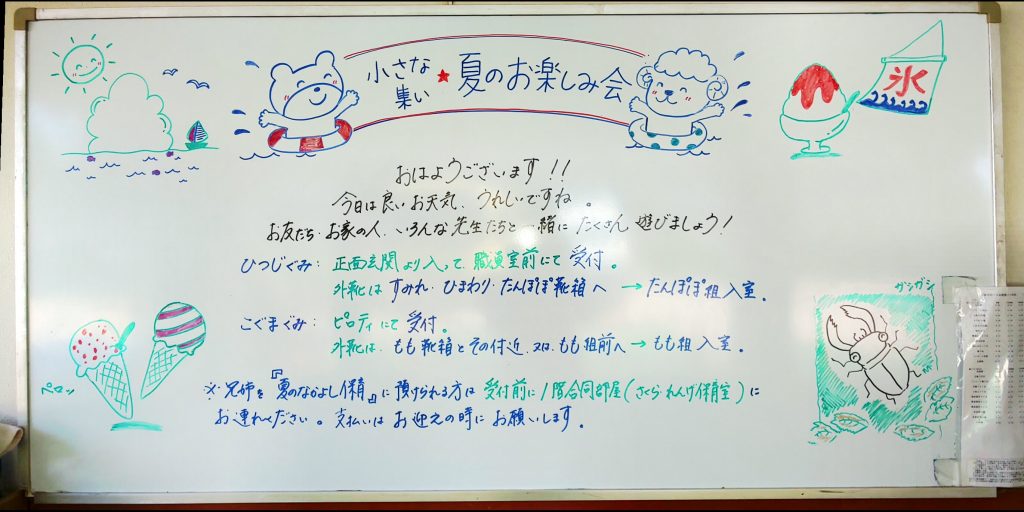 小さな集い★夏のお楽しみ会
氷
おはようございます!!
今日は良いお天気、うれしいですね。
お友だち・お家の人、いろんな先生たちと一緒にたくさん遊びましょう!
ひつじぐみ: 正面玄関より入って、職員室前にて受付。
外靴は すみれ・ひまわり・たんぽぽ靴箱へ →たんぽぽ組入室。
こぐまぐみ: ピロティにて受付。
外靴は、もも靴箱とその付近、又は、もも組前へ→もも組入室。
※兄姉を『夏のなかよし保育』に預けられる方は受付前に1階合同部屋(さくら・れんげ保育室)に
お連れください。支払いはお迎えの時にお願いします。
ペロッ
ガシガシ